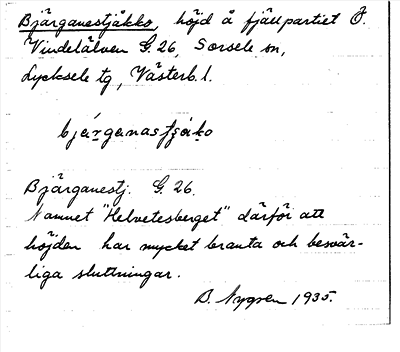 Bjärganestjåkko, höjd å fjällpartiet Ö.
Vindelälven G. 26, Sorsele sn,
Lycksele tg, Västerb. l.
bjärganastjåko
Bjärganestj. G. 26.
Namnet "Helvetesberget" därför att
höjden har mycket branta och besvär-
liga sluttningar.
B. Nygren 1935.